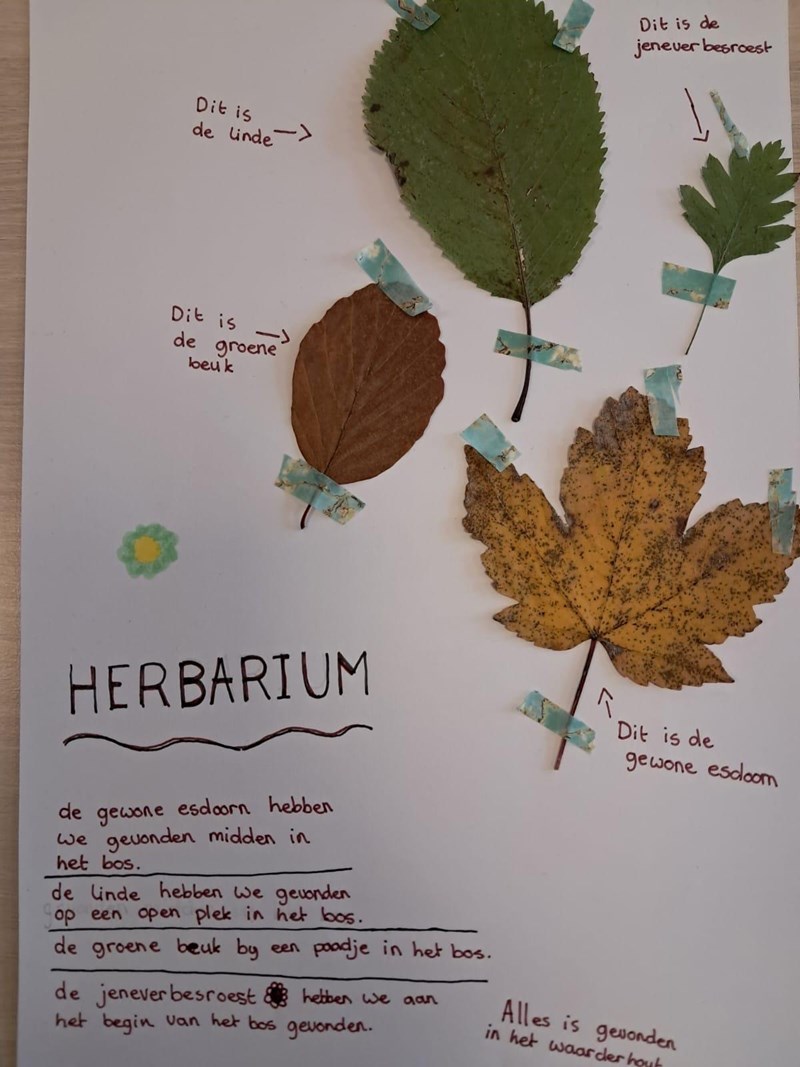 Dit is de
jeneverbesroest
Dit is
de linde
Dit is
de groene
beuk
Dit is de
gewone esdoorn
HERBARIUM
de gewone esdoorn hebben
we gevonden midden in
het bos.
de linde hebben we gevonden
op een open plek in het bos.
de groene beuk by een paadje in het bos.
de jeneverbesroest hebben we aan
het begin van het bos gevonden.
Alles is gevonden
in het waarderhout